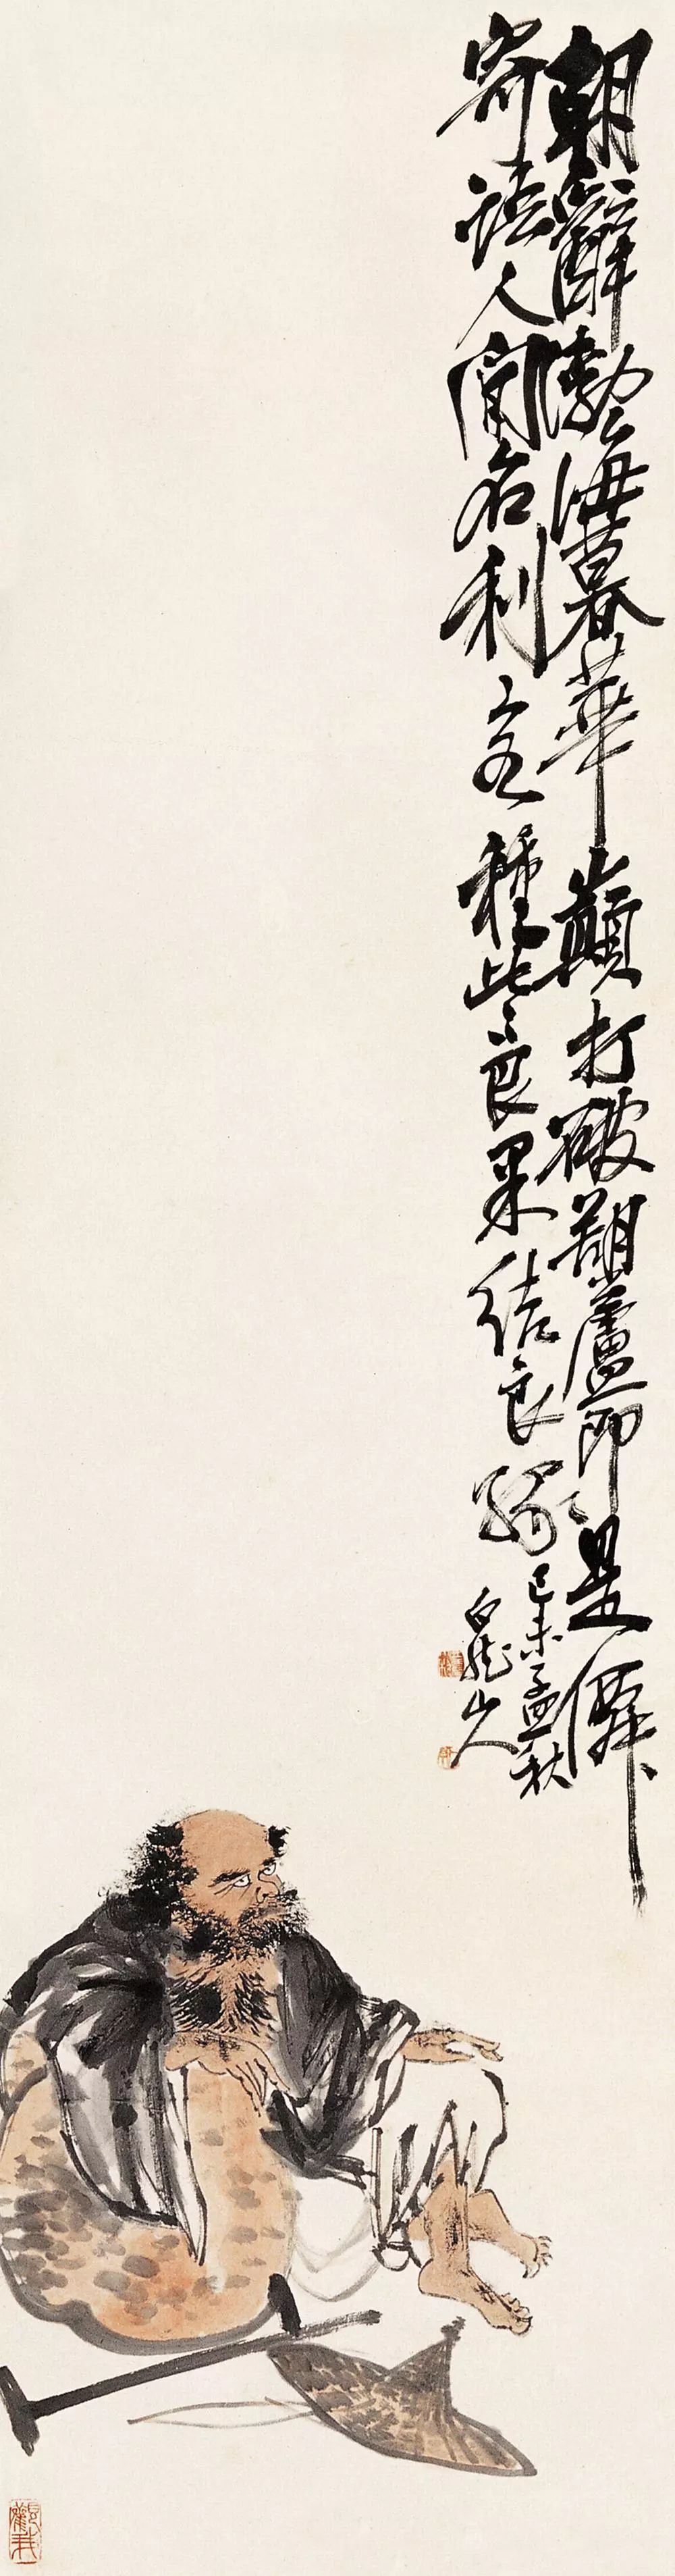 朝辭渤海暮華巔打破葫蘆即是僊
寄語人間名利客種些良果結良緣
己未孟秋
白龍山人